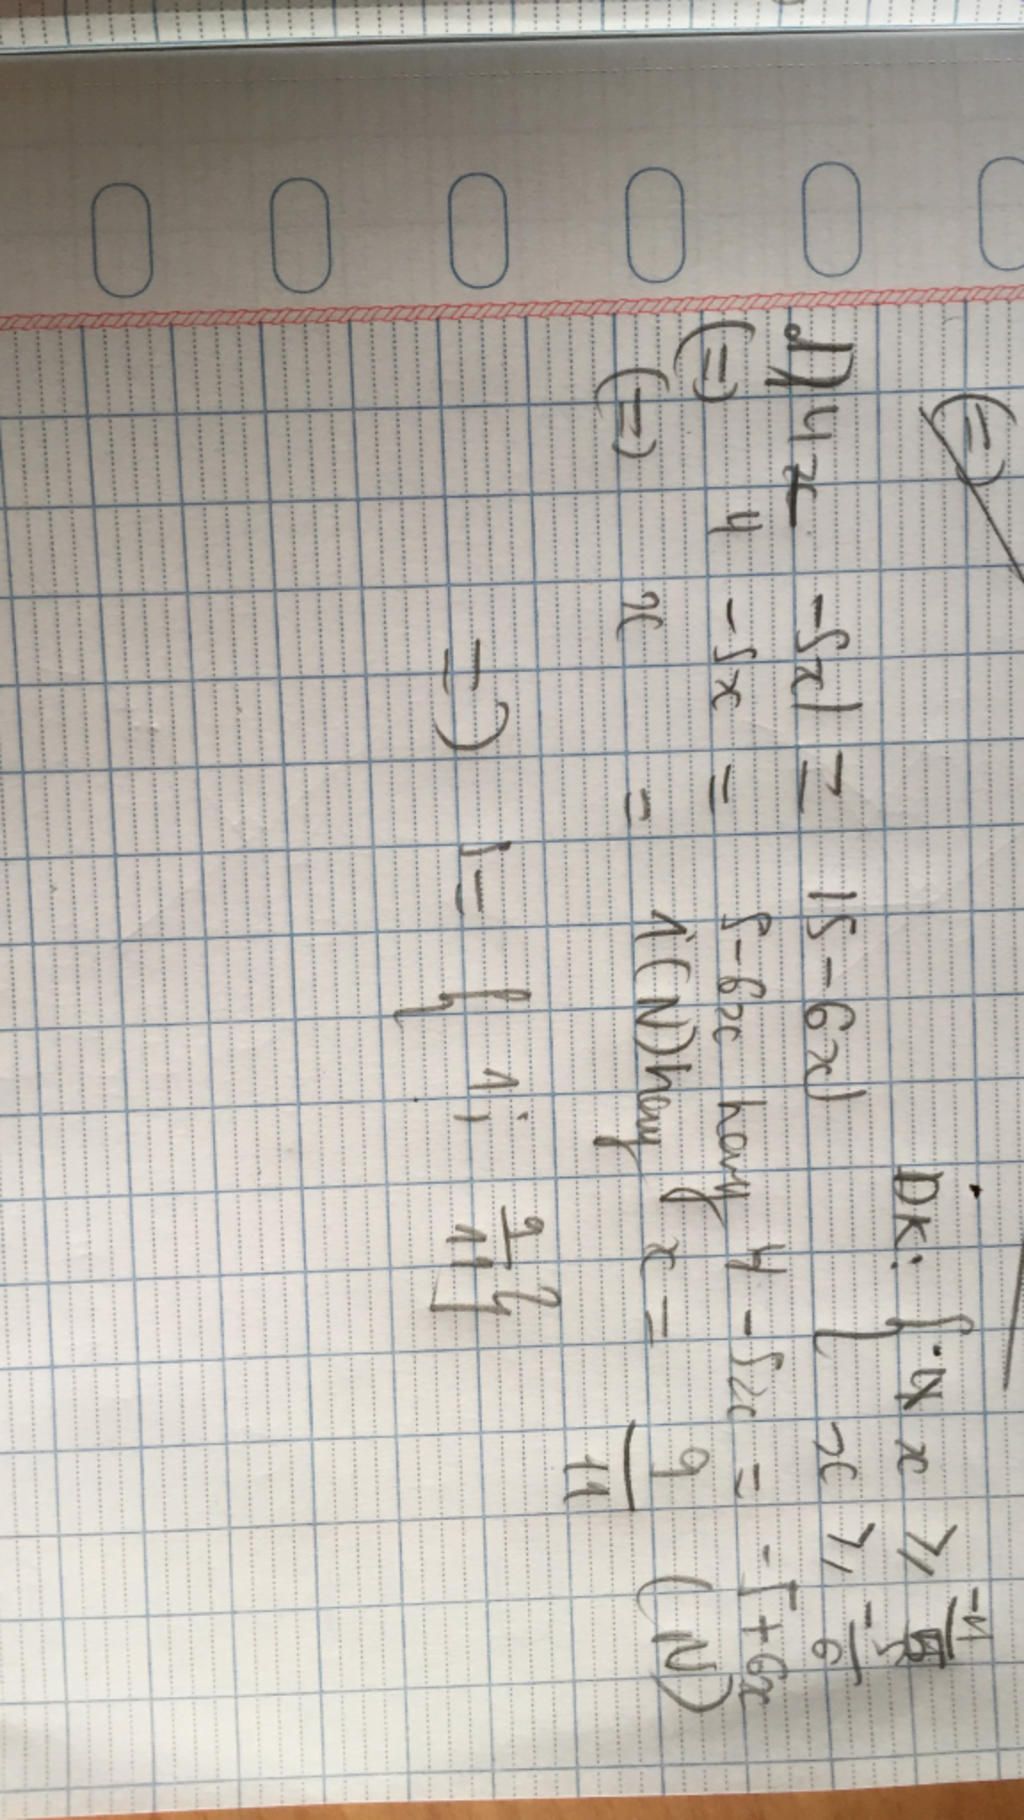 (=)
ĐK: { x ⩾ -4/5
x ⩾ -5/6
d) |4 -5x| = |5-6x|
(=) 4 -5x = 5-6x hay 4 -5x = -5+6x
(=) x = 1 (N) hay x = 9/11 (N)
=) S = { 1; 9/11 }